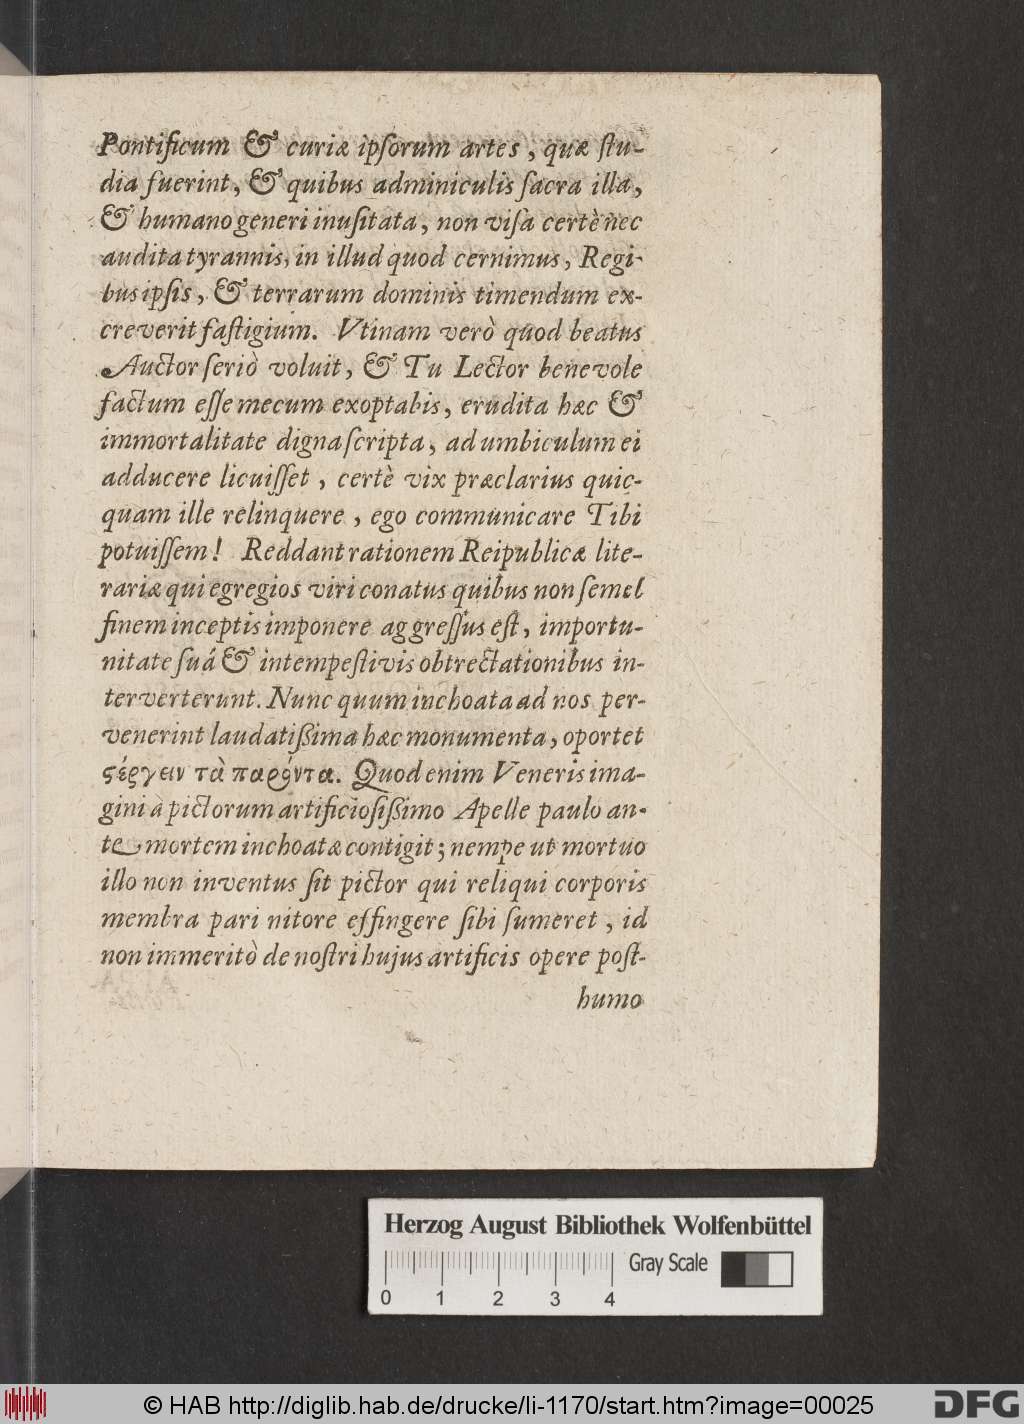 Pontificum & curiæ ipſorum artes, quæ ſtu-
dia fuerint, & quibus adminiculis ſacra illa,
& humano generi inuſitata, non viſa certè nec
audita tyrannis, in illud quod cernimus, Regi-
bus ipſis, & terrarum dominis timendum ex-
creverit faſtigium. Vtinam verò quod beatus
Auctor ſeriò voluit, & Tu Lector benevole
factum eſſe mecum exoptabis, erudita hæc &
immortalitate digna ſcripta, ad umbiculum ei
adducere licuiſſet, certè vix præclarius quic-
quam ille relinquere, ego communicare Tibi
potuiſſem! Reddant rationem Reipublicæ lite-
rariæ qui egregios viri conatus quibus non ſemel
finem inceptis imponere aggreſſus eſt, importu-
nitate ſuá & intempeſtivis obtrectationibus in-
terverterunt. Nunc quum inchoata ad nos per-
venerint laudatißima hæc monumenta, oportet
ϛέργειν τὰ παρόντα. Quod enim Veneris ima-
gini à pictorum artificioſißimo Apelle paulo an-
te mortem inchoatæ contigit; nempe ut mortuo
illo non inventus ſit pictor qui reliqui corporis
membra pari nitore effingere ſibi ſumeret, id
non immeritò de noſtri hujus artificis opere poſt-
humo
Herzog August Bibliothek Wolfenbüttel
Gray Scale
0 1 2 3 4
© HAB http://diglib.hab.de/drucke/li-1170/start.htm?image=00025
DFG